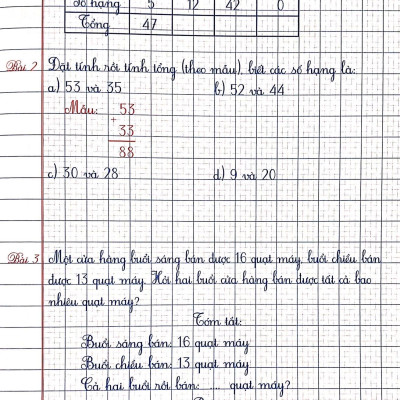 Số hạng 5 12 42 0
Tổng 47
Bài 2 Đặt tính rồi tính tổng (theo mẫu), biết các số hạng là:
a) 53 và 35 b) 52 và 44
Mẫu: 53
+
33
88
c) 30 và 28 d) 9 và 20
Bài 3 Một cửa hàng buổi sáng bán được 16 quạt máy, buổi chiều bán
được 13 quạt máy. Hỏi hai buổi cửa hàng bán được tất cả bao
nhiêu quạt máy?
Tóm tắt:
Buổi sáng bán: 16 quạt máy
Buổi chiều bán: 13 quạt máy
Cả hai buổi rồi bán: .... quạt máy?